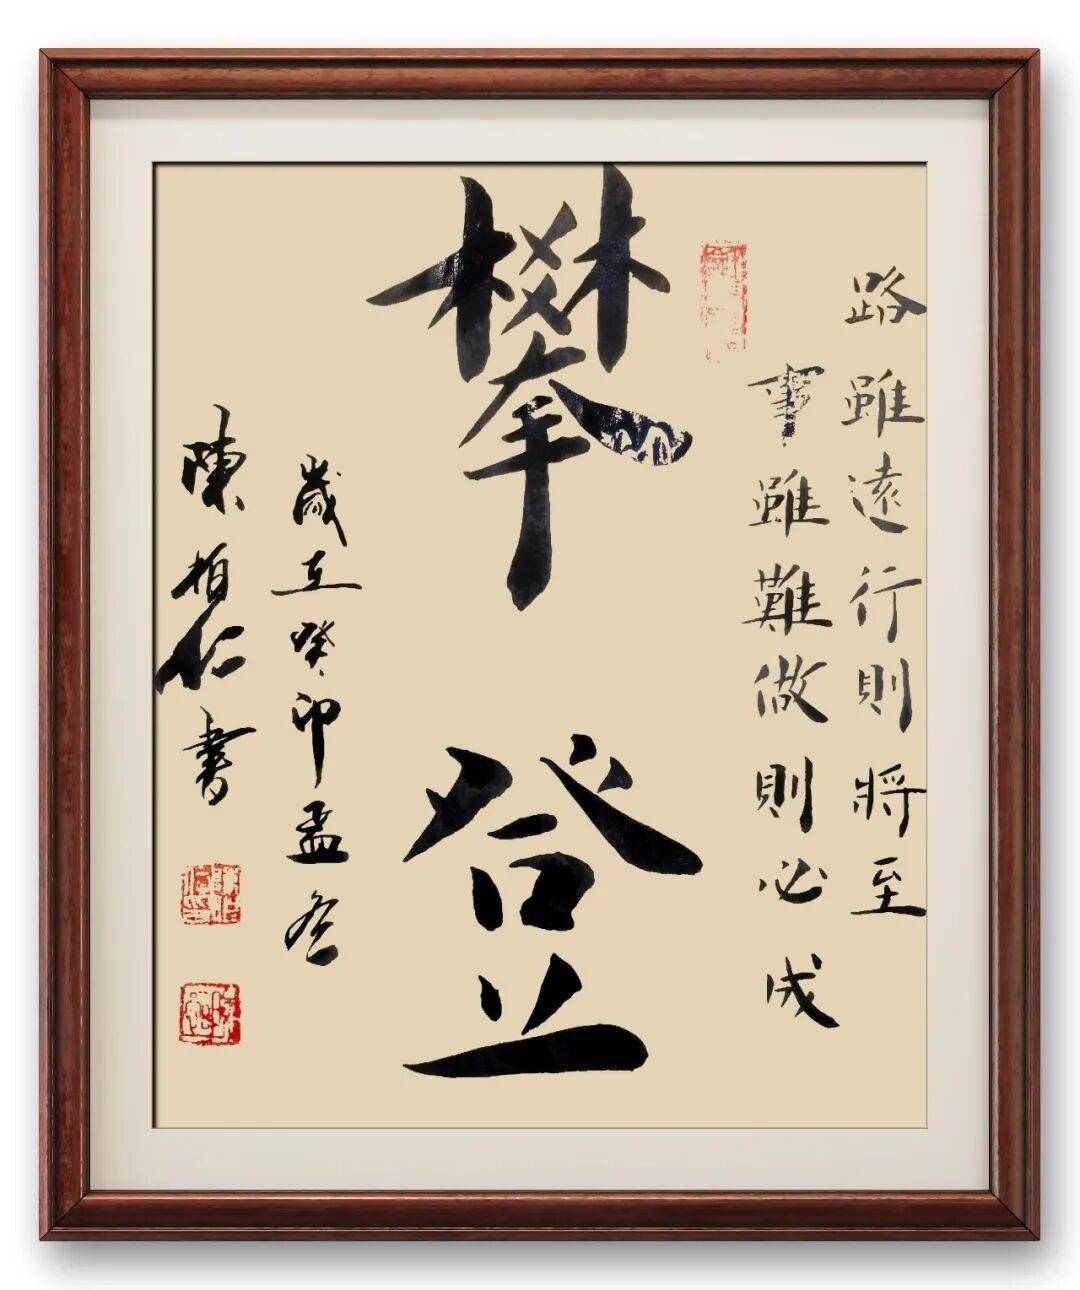 路雖遠行則將至
事雖難做則必成
攀登
歲在癸卯孟冬
陳柏仁書